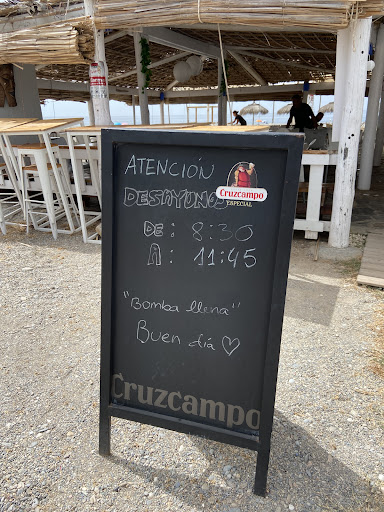 ATENCIÓN
Cruzcampo
ESPECIAL
DESAYUNOS
DE: 8:30
A: 11:45
"Bomba llena"
Buen día ♡
Cruzcampo